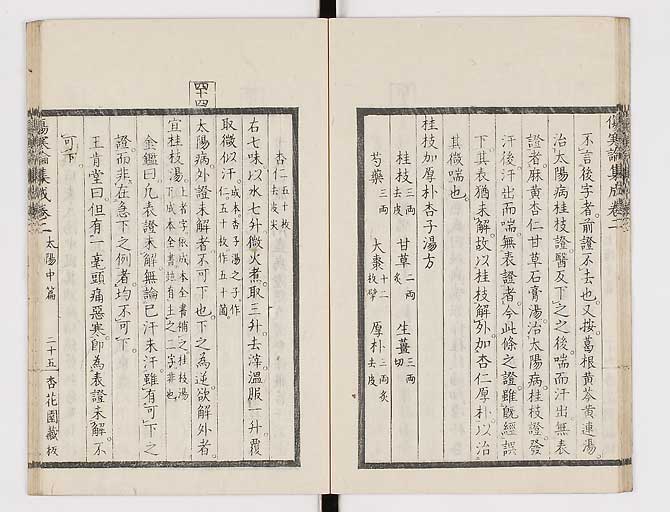 傷寒論集成卷二
不言後字者前證不去也又按葛根黃芩黃連湯
治太陽病桂枝證醫反下之之後喘而汗出無表
證者麻黃杏仁甘草石膏湯治太陽病桂枝證發
汗後汗出而喘無表證者今此條之證雖既經誤
下其表猶未解故以桂枝解外加杏仁厚朴以治
其微喘也
桂枝加厚朴杏子湯方
桂枝三兩去皮 甘草二兩炙 生薑三兩切
芍藥三兩 大棗十二枚擘 厚朴三兩炙去皮
杏仁五十枚去皮尖
右七味以水七升微火煮取三升去滓溫服一升覆
取微似汗成本杏子湯之子作仁五十枚作五十箇
四十四
太陽病外證未解者不可下也下之為逆欲解外者
宜桂枝湯上者字依成本全書補之桂枝湯下成本全書有主之二字非也
金鑑曰凡表證未解無論已汗未汗雖有可下之
證而非在急下之例者均不可下
王肯堂曰但有一毫頭痛惡寒即為表證未解不
可下
傷寒論集成卷二 太陽中篇 二十五 杏花園藏板